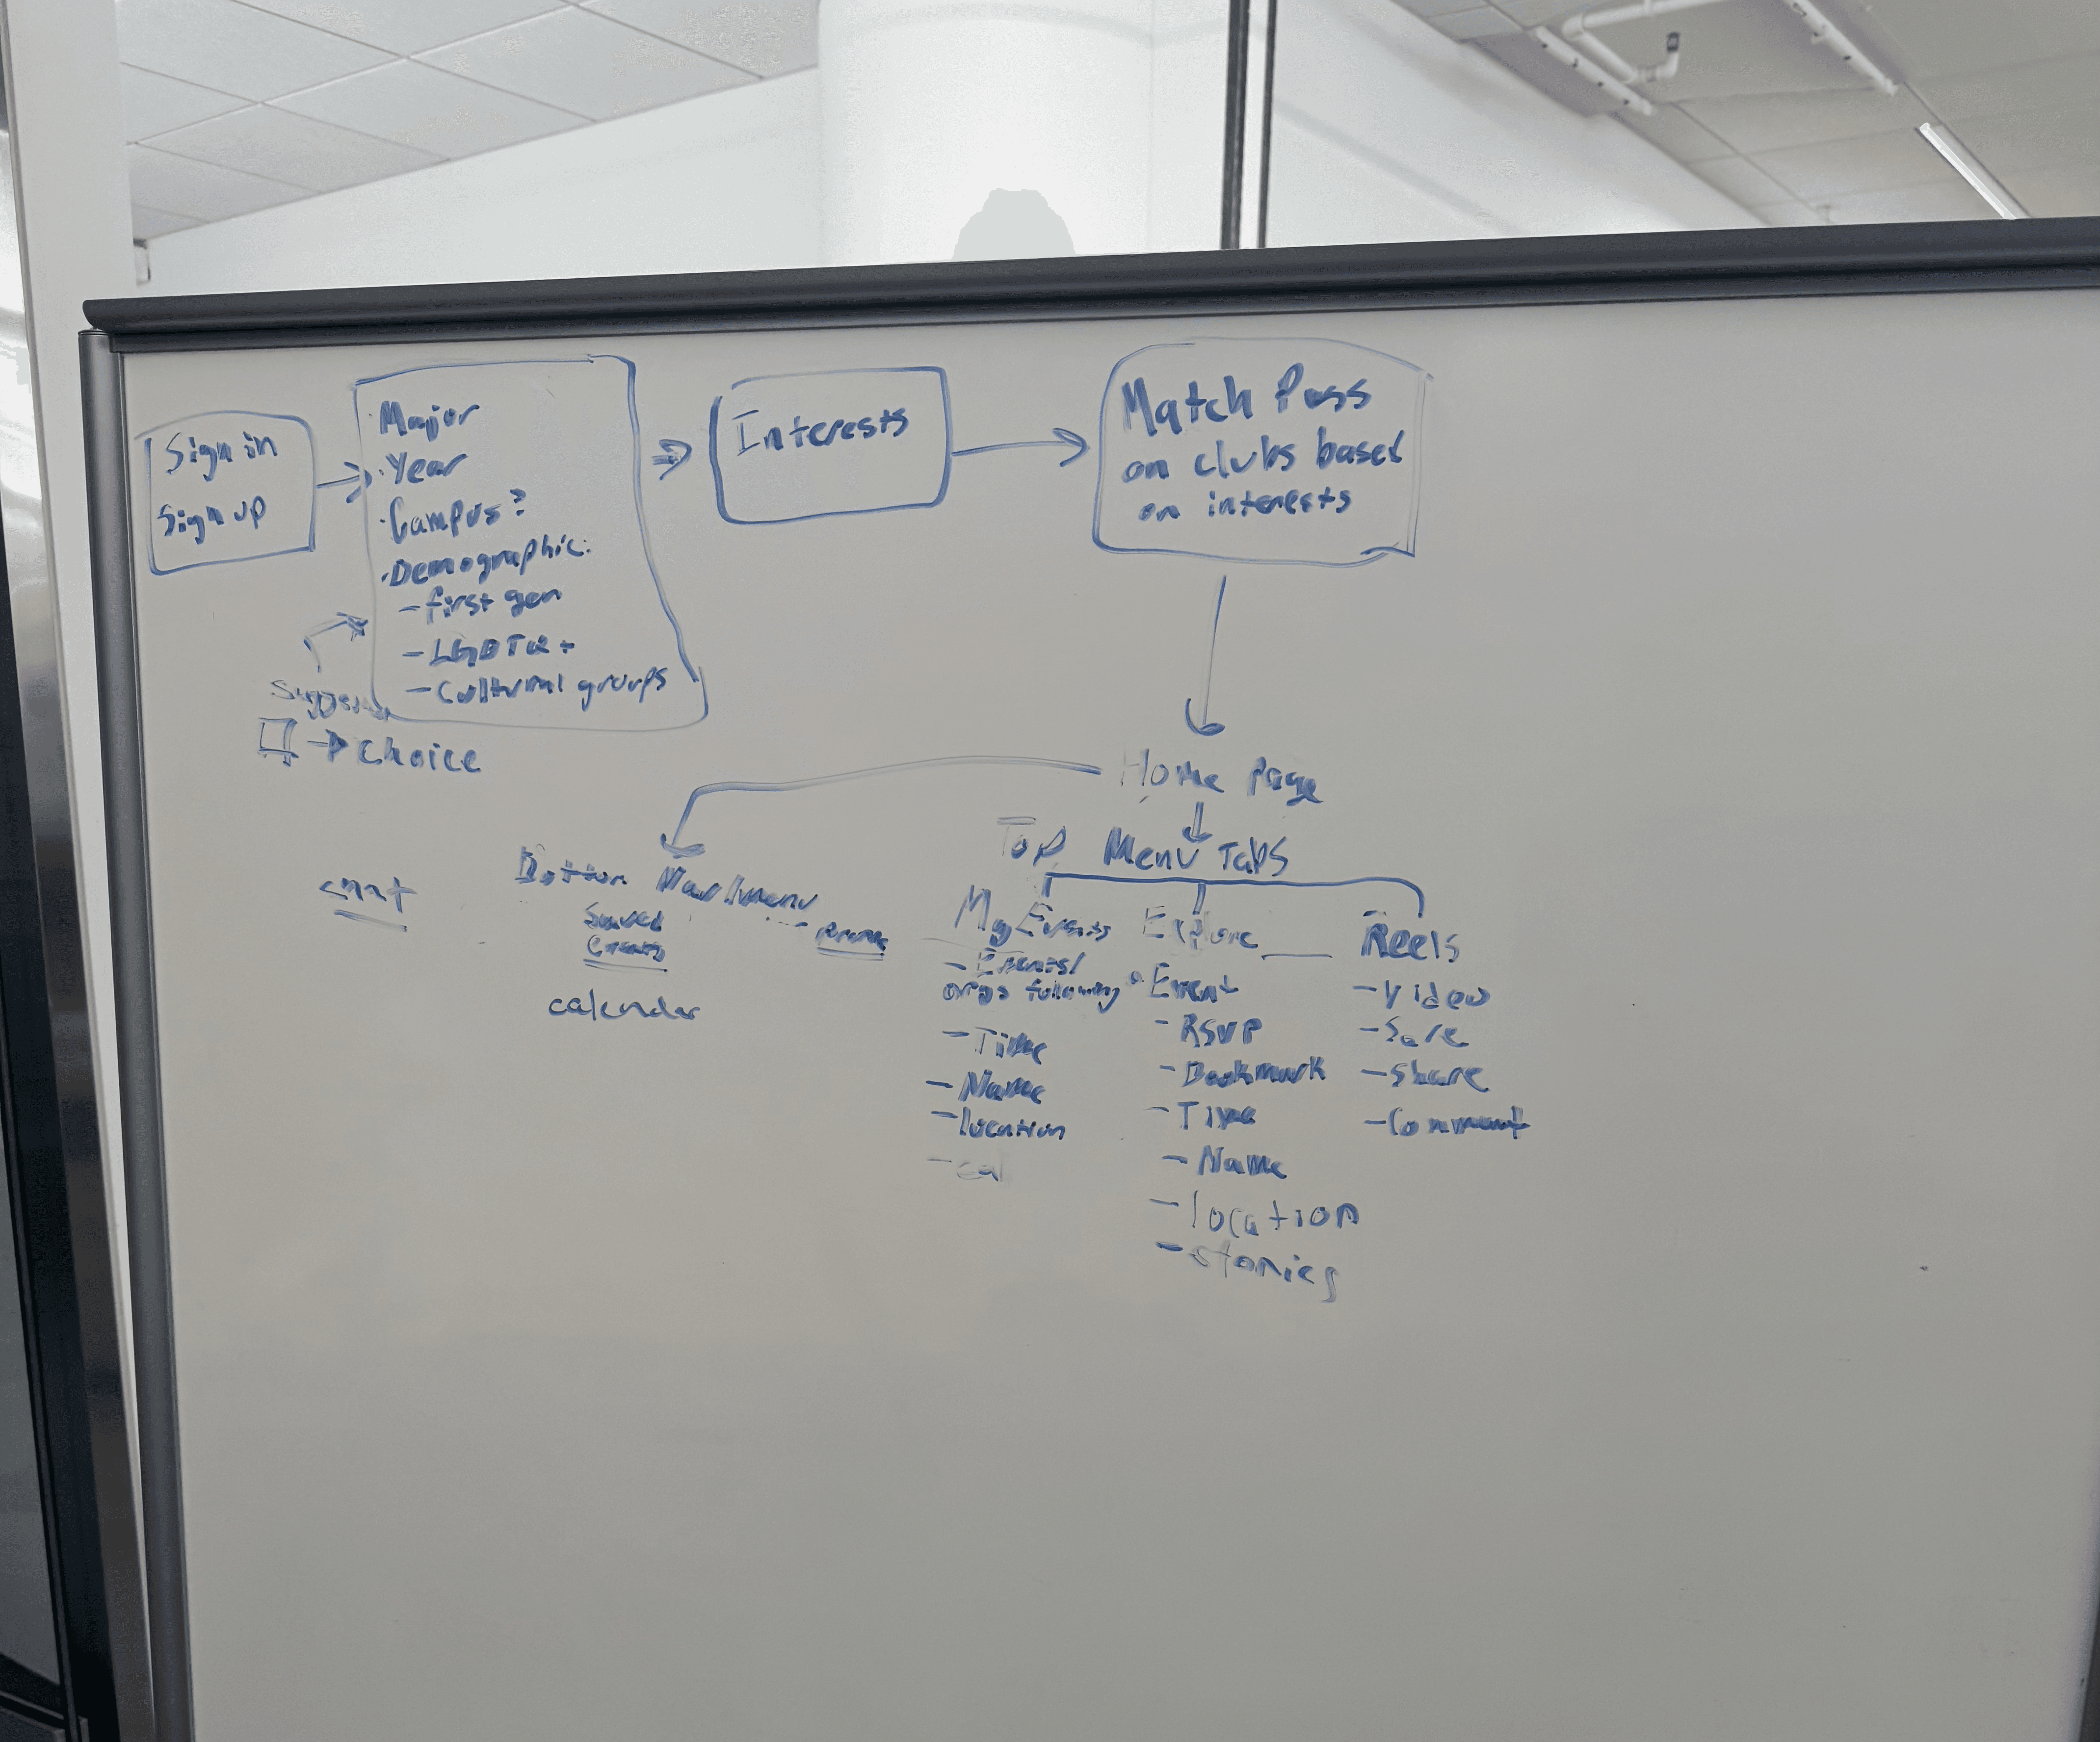 Sign in
Sign up
· Major
· Year
· Campus?
· Demographic:
- first gen
- LGBTQ+
- Cultural groups
→ choice
Interests
Match Pass
on clubs based
on interests
Home page
Top Menu Tabs
Bottom Nav/menu
Saved
Events
calendar
chat
My Events
- Events/
orgs following
- Time
- Name
- location
- cal
Explore
Event
- RSVP
- Bookmark
- Time
- Name
- location
- stories
Reels
- Video
- Share
- Comment